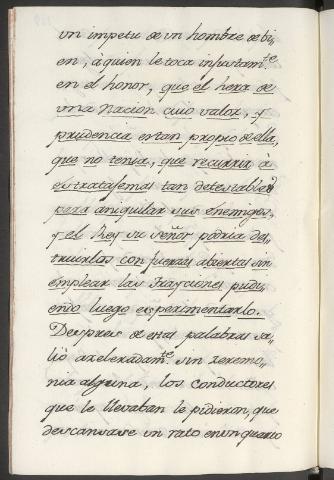 un impetu de un hombre de bi„
en, à quien le toca injustam.te
en el honor, que el hera de
una Nacion cuio valor, y
prudencia estan propio de ella,
que no tenia, que recurrir à
estratafemas tan detestables
para aniquilar sus Enemigos,
y el Rey su señor podria des„
truirlos con fuerzas abiertas sin
emplear las trayciones pudi„
endo luego esperimentarlo.
Despues de estas palabras sa„
liò azeleradam.te sin zeremo„
nia alguna, los conductores
que le llevaban le pidieron, que
descansase un rato en un quarto